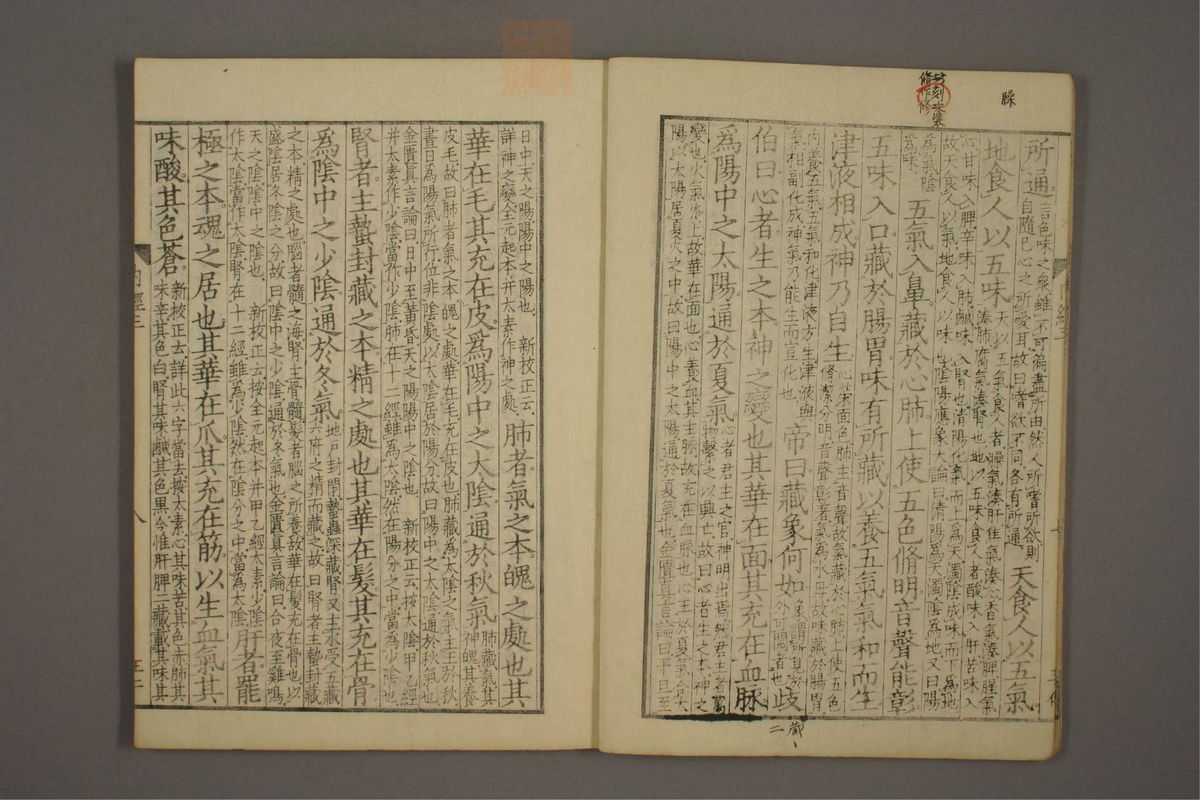 臊
封刻安集
脩作修
所通
言色味之衆雖不可徧盡所由然人所嗜所欲則
自隨己心之所愛耳故曰嗜欲不同各有所通
天食人以五氣
地食人以五味
天以五氣食人者臊氣湊肝焦氣湊心香氣湊脾腥氣
湊肺腐氣湊腎也地以五味食人者酸味入肝苦味入
心甘味入脾辛味入肺鹹味入腎也清陽化氣而上爲天濁陰成味而下爲地
故天食人以氣地食人以味也陰陽應象大論曰清陽爲天濁陰爲地又曰陽
爲氣陰
爲味
五氣入鼻藏於心肺上使五色脩明音聲能彰
五味入口藏於腸胃味有所藏以養五氣氣和而生
津液相成神乃自生
心榮面色肺主音聲故氣藏於心肺上使五色
脩潔分明音聲彰著氣爲水母故味藏於腸胃
內養五氣五氣和化津液方生津液與
氣相副化成神氣乃能生而宣化也
帝曰藏象何如
象謂所見於
外可閱者也
歧
伯曰心者生之本神之變也其華在面其充在血脉
爲陽中之太陽通於夏氣
心者君主之官神明出焉然君主者萬
物繫之以興亡故曰心者生之本神之
變也火氣炎上故華在面也心養血其主脉故充在血脉也心王於夏氣合太
陽以太陽居夏火之中故曰陽中之太陽通於夏氣也金匱真言論曰平旦至
藏
二
日中天之陽陽中之陽也 新校正云
詳神之變全元起本并太素作神之處
肺者氣之本魄之處也其
華在毛其充在皮爲陽中之太陰通於秋氣
肺藏氣其
神魄其養
皮毛故曰肺者氣之本魄之處華在毛充在皮也肺藏爲太陰之氣主王於秋
晝日爲陽氣所行位非陰處以太陰居於陽分故曰陽中之太陰通於秋氣也
金匱真言論曰日中至黃昏天之陽陽中之陰也 新校正云按太陰甲乙經
并太素作少陰當作少陰肺在十二經雖爲太陰然在陽分之中當爲少陰也
腎者主蟄封藏之本精之處也其華在髮其充在骨
爲陰中之少陰通於冬氣
地戶封閉蟄蟲深藏腎又主水受五藏
六府之精而藏之故曰腎者主蟄封藏
之本精之處也腦者髓之海腎主骨髓髮者腦之所養故華在髮充在骨也以
盛陰居冬陰之分故曰陰中之少陰通於冬氣也金匱真言論曰合夜至雞鳴
天之陰陰中之陰也 新校正云按全元起本并甲乙經太素少陰
作太陰當作太陰腎在十二經雖爲少陰然在陰分之中當爲太陰
肝者罷
極之本魂之居也其華在爪其充在筋以生血氣其
味酸其色蒼
新校正云詳此六字當去按太素心其味苦其色赤肺其
味辛其色白腎其味鹹其色黑今惟肝脾二藏載其味其
內經三
八